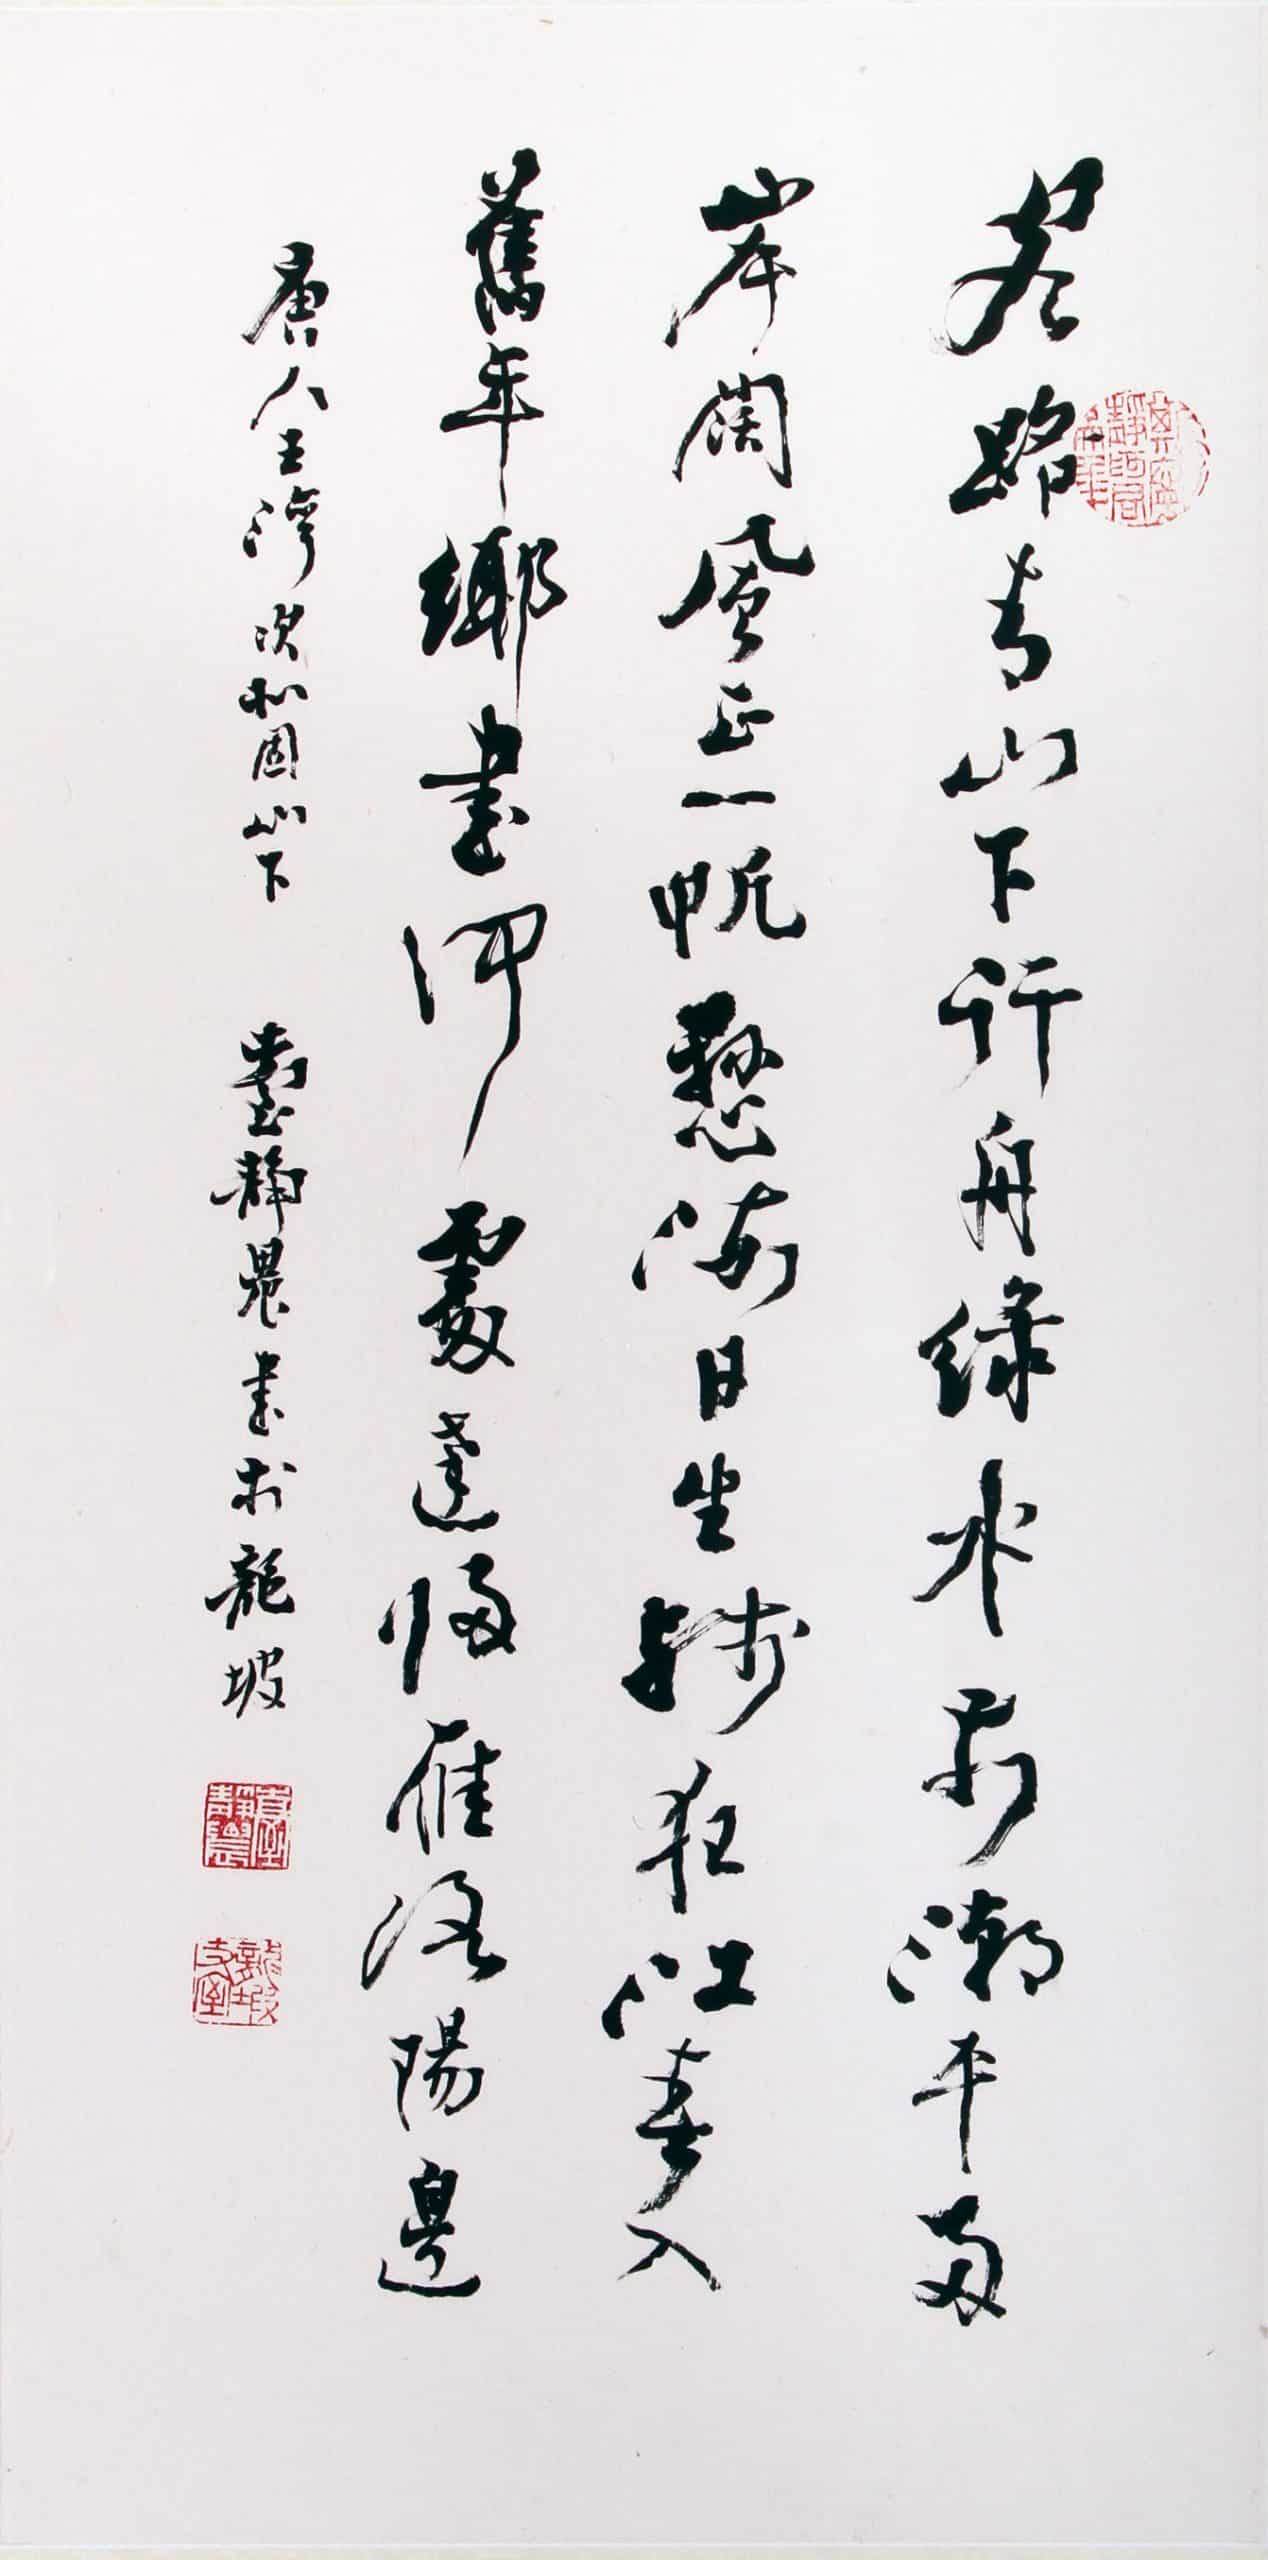 客路青山下行舟綠水前潮平兩
岸闊風正一帆懸海日生殘夜江春入
舊年鄉書何處達歸雁洛陽邊
唐人王灣次北固山下 臺靜農書於龍坡
臺靜農
龍坡丈室